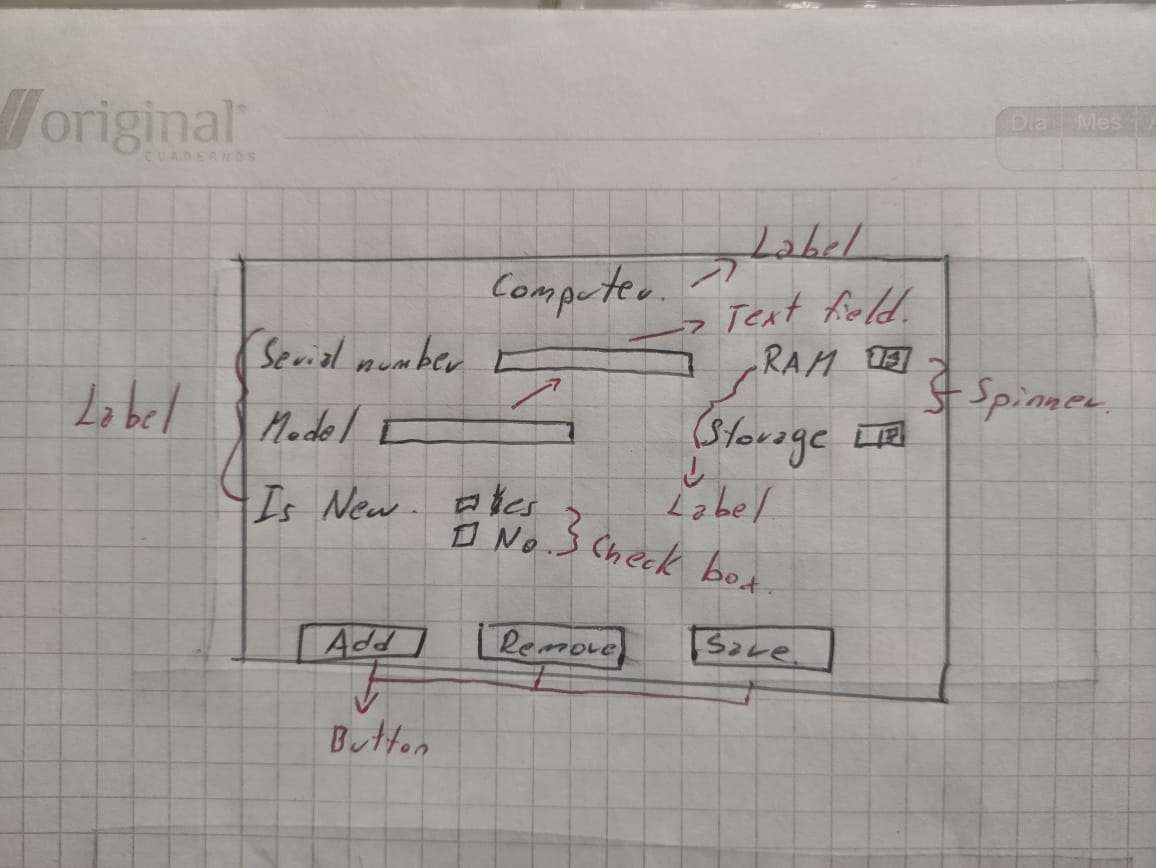 original®
CUADERNOS
Día Mes A
Label
Computer.
Text field.
Serial number
RAM
Spinner.
Label
Model
Storage
Is New.
Yes
Label
No.
Check box.
Add
Remove
Save.
Button